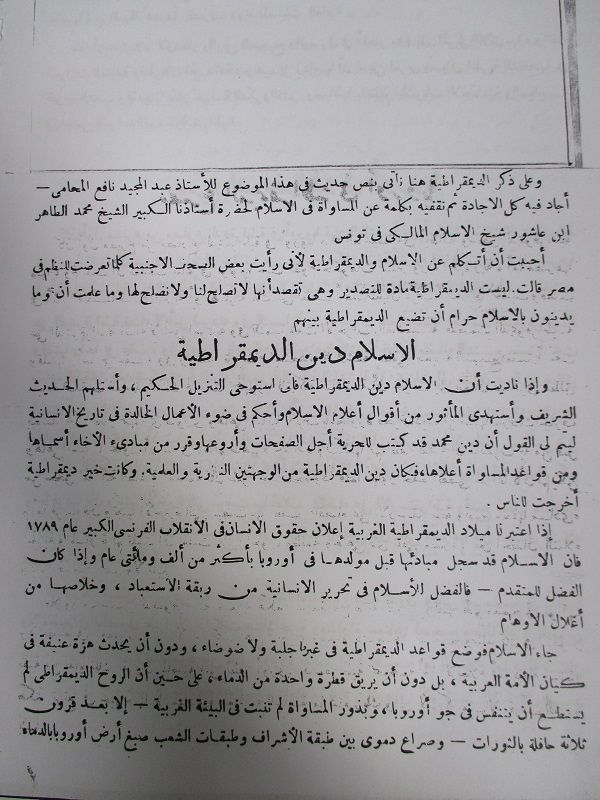 وعلى ذكر الديمقراطية هنا نأتى بنص حديث فى هذا الموضوع للأستاذ عبد المجيد نافع المحامى —
أجاد فيه كل الاجادة ثم نقفيه بكلمة عن المساواة فى الاسلام لحضرة أستاذنا الكبير الشيخ محمد الطاهر
ابن عاشور شيخ الاسلام المالكى فى تونس
أحببت أن أتكلم عن الاسلام والديمقراطية لأنى رأيت بعض الصحف الاجنبية كلما تعرضت للنظم فى
مصر قالت. ليست الديمقراطية مادة للتصدير وهى تقصد أنها لا تصلح لنا ولا نصلح لها وما علمت أن قوما
يدينون بالاسلام حرام أن تضيع الديمقراطية بينهم
الاسلام دين الديمقراطية
وإذا ناديت أن الاسلام دين الديمقراطية فانى استوحى التنزيل الحكيم، وأستلهم الحديث
الشريف وأستهدى المأثور من أقوال أعلام الاسلام وأحكم فى ضوء الأعمال الخالدة فى تاريخ الانسانية
ليتم لى القول أن دين محمد قد كتب للحرية أجل الصفحات وأروعها وقرر من مبادىء الأخاء أسماها
ومن قواعد المساواة أعلاها، فكان دين الديمقراطية من الوجهتين النظرية والعلمية. وكانت خير ديمقراطية
أخرجت للناس.
إذا اعتبرنا ميلاد الديمقراطية الغربية إعلان حقوق الانسان فى الأنقلاب الفرنسى الكبير عام ١٧٨٩
فان الاسلام قد سجل مبادئها قبل مولدها فى أوروبا بأكثر من ألف ومائتى عام وإذا كان
الفضل للمتقدم — فالفضل للأسلام فى تحرير الانسانية من ربقة الأستعباد، وخلاصها من
أغلال الاوهام
جاء الاسلام فوضع قواعد الديمقراطية فى غير جلبة ولا ضوضاء، ودون أن يحدث هزة عنيفة فى
كيان الأمة العربية، بل دون أن يريق قطرة واحدة من الدماء، على حين أن الروح الديمقراطى لم
يستطع أن يتنفس فى جو أوروبا، وبذور المساواة لم تنبت فى البيئة الغربية — إلا بعد قرون
ثلاثة حافلة بالثورات — وصراع دموى بين طبقة الأشراف وطبقات الشعب صبغ أرض أوروبا بالدماء